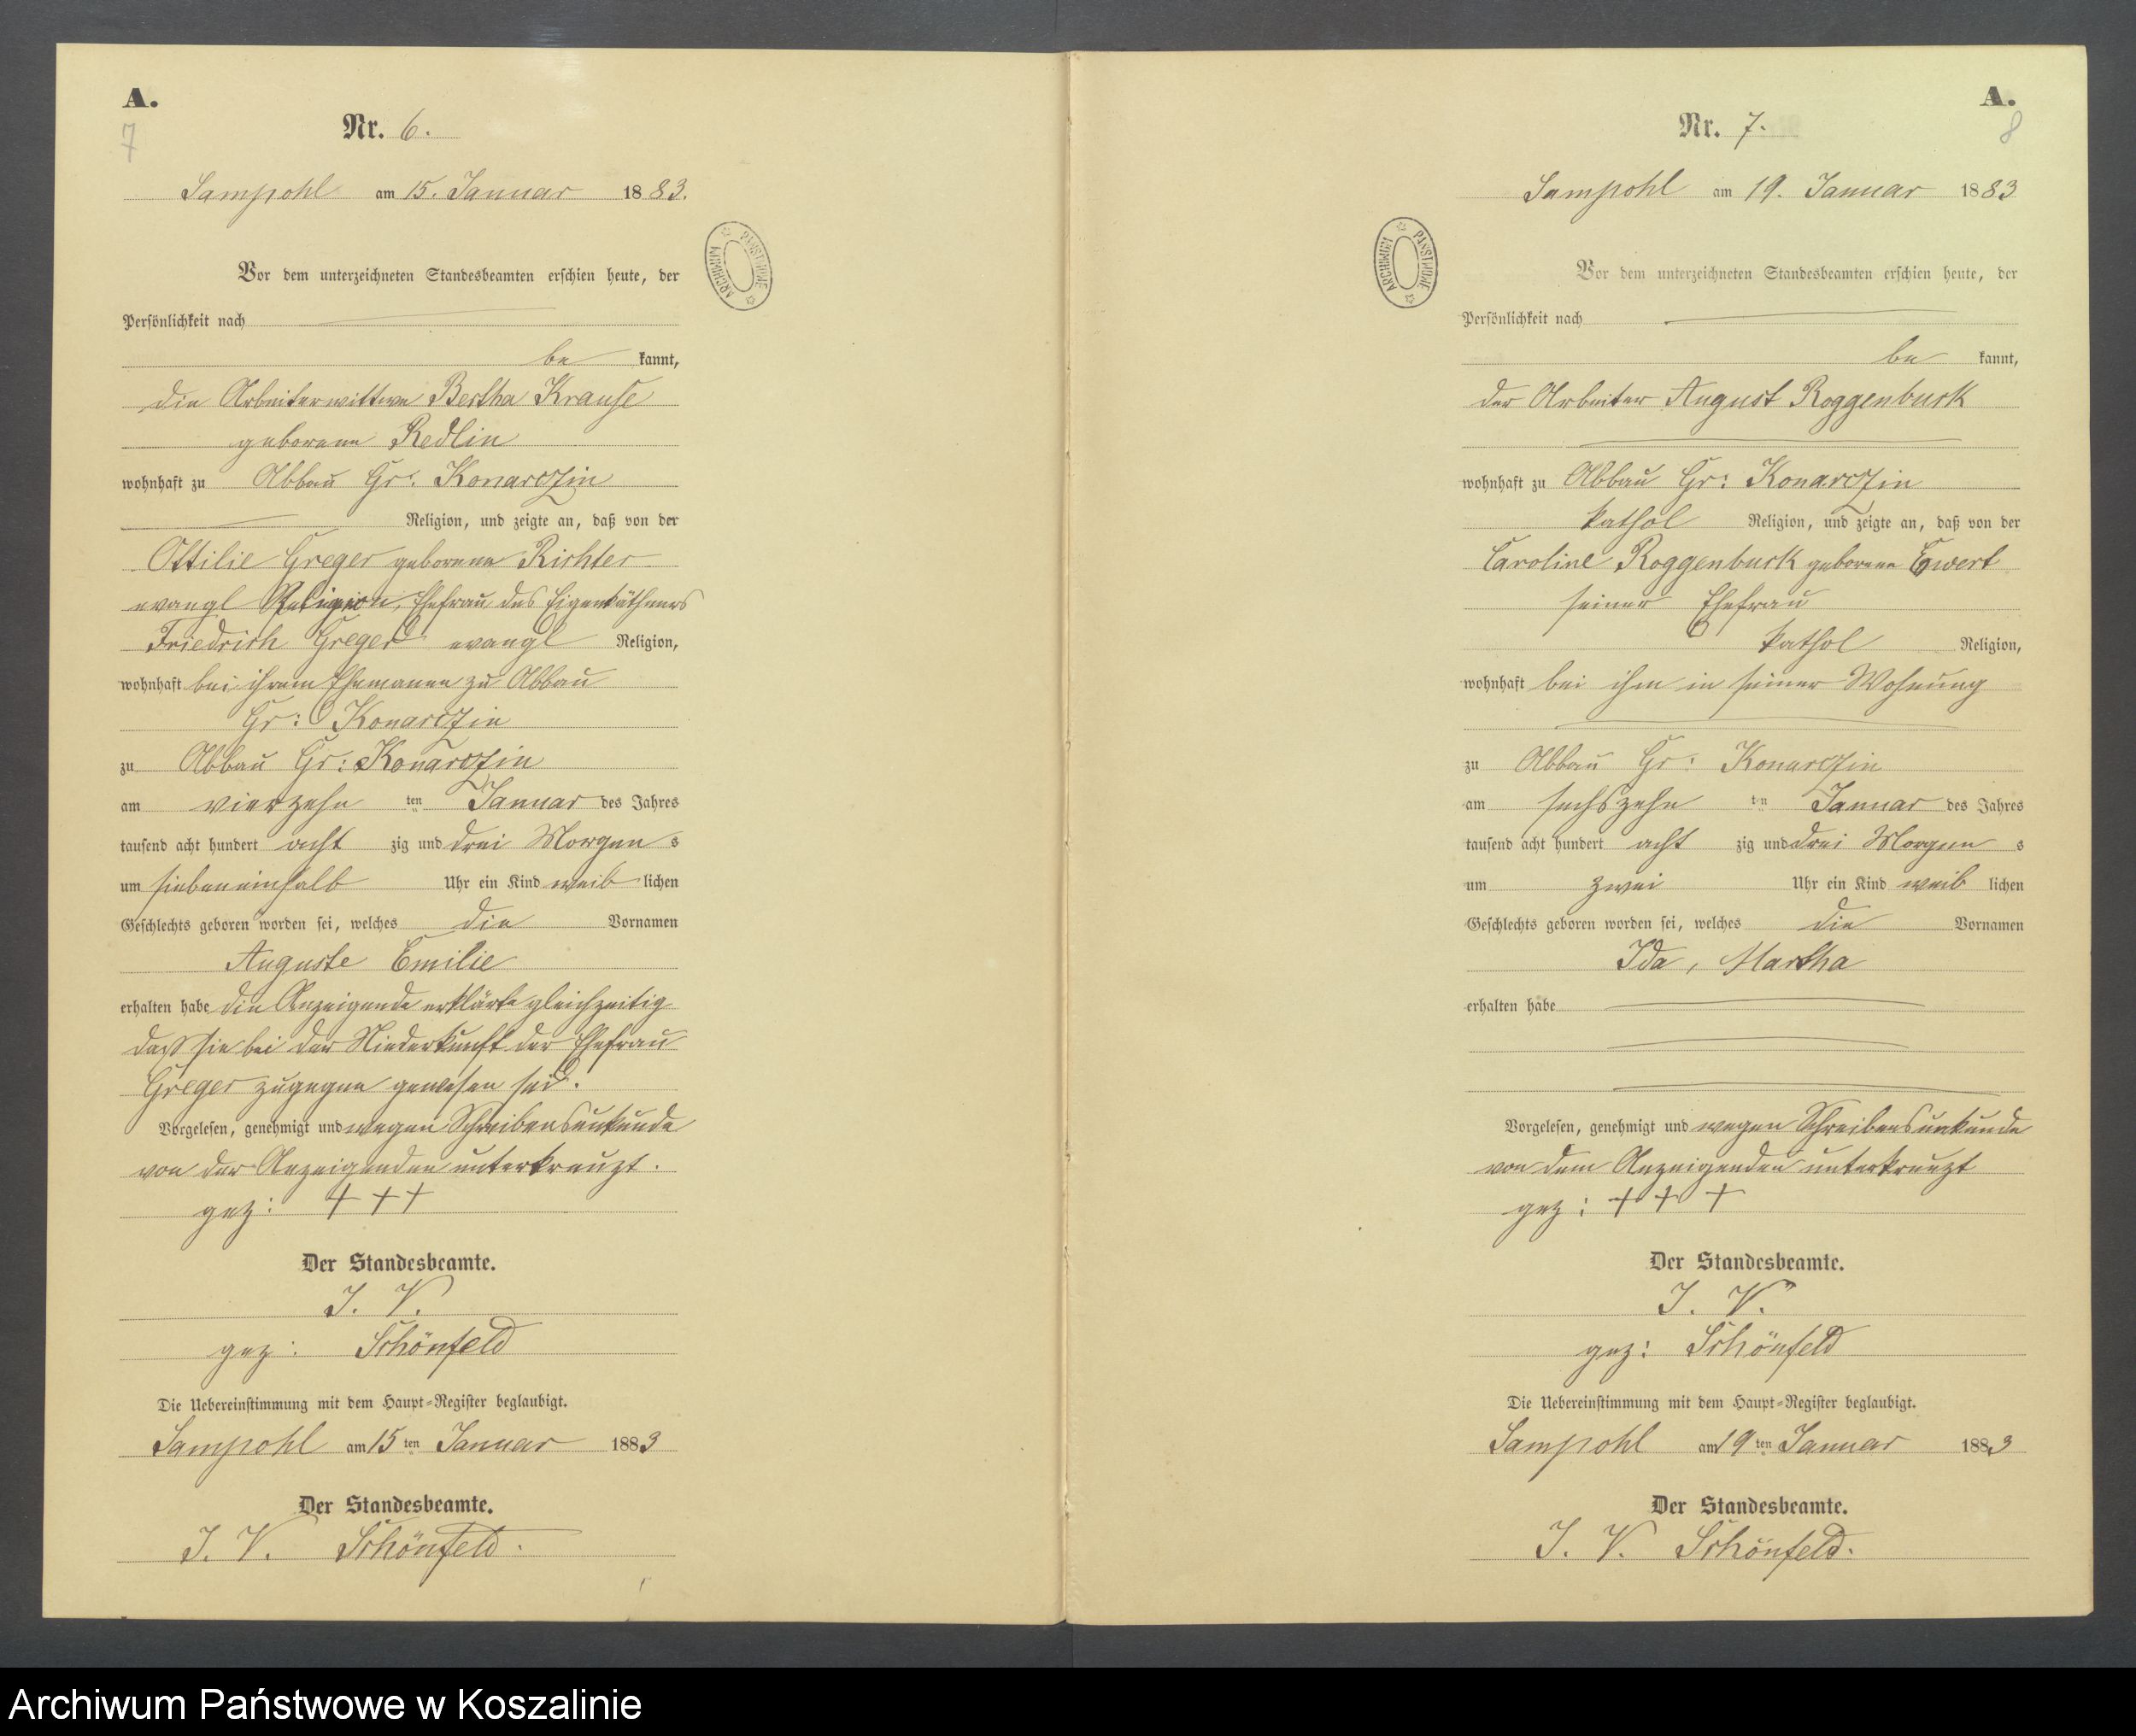 A.
7
Nr. 6.
Sampohl am 15. Januar 1883.
ARCHIWUM PAŃSTWOWE
Vor dem unterzeichneten Standesbeamten erschien heute, der
Persönlichkeit nach
be kannt,
die Arbeiterwittwe Bertha Krause
geborene Redlin
wohnhaft zu Abbau Gr: Konarczin
Religion, und zeigte an, daß von der
Ottilie Greger geborene Richter
evangl Religion, Ehefrau des Eigenkäthners
Friedrich Greger evangl Religion,
wohnhaft bei ihrem Ehemanne zu Abbau
Gr: Konarczin
zu Abbau Gr: Konarczin
am vierzehn ten Januar des Jahres
tausend acht hundert acht zig und drei Morgen s
um siebeneinhalb Uhr ein Kind weib lichen
Geschlechts geboren worden sei, welches die Vornamen
Auguste Emilie
erhalten habe die Anzeigende erklärte gleichzeitig
daß sie bei der Niederkunft der Ehefrau
Greger zugegen gewesen sei.
Vorgelesen, genehmigt und wegen Schreibensunkunde
von der Anzeigenden unterkreuzt.
gez: + + +
Der Standesbeamte.
J. V.
gez: Schönfeld
Die Uebereinstimmung mit dem Haupt-Register beglaubigt.
Sampohl am 15 ten Januar 1883
Der Standesbeamte.
J. V. Schönfeld.
A.
8
Nr. 7.
Sampohl am 19. Januar 1883
ARCHIWUM PAŃSTWOWE
Vor dem unterzeichneten Standesbeamten erschien heute, der
Persönlichkeit nach
be kannt,
der Arbeiter August Roggenbuck
wohnhaft zu Abbau Gr: Konarczin
kathol Religion, und zeigte an, daß von der
Caroline Roggenbuck geborene Ewert
seiner Ehefrau
kathol Religion,
wohnhaft bei ihm in seiner Wohnung
zu Abbau Gr: Konarczin
am sechszehn ten Januar des Jahres
tausend acht hundert acht zig und drei Morgen s
um zwei Uhr ein Kind weib lichen
Geschlechts geboren worden sei, welches die Vornamen
Ida, Martha
erhalten habe
Vorgelesen, genehmigt und wegen Schreibensunkunde
von dem Anzeigenden unterkreuzt
gez: + + +
Der Standesbeamte.
J. V.
gez: Schönfeld
Die Uebereinstimmung mit dem Haupt-Register beglaubigt.
Sampohl am 19 ten Januar 1883
Der Standesbeamte.
J. V. Schönfeld.
Archiwum Państwowe w Koszalinie